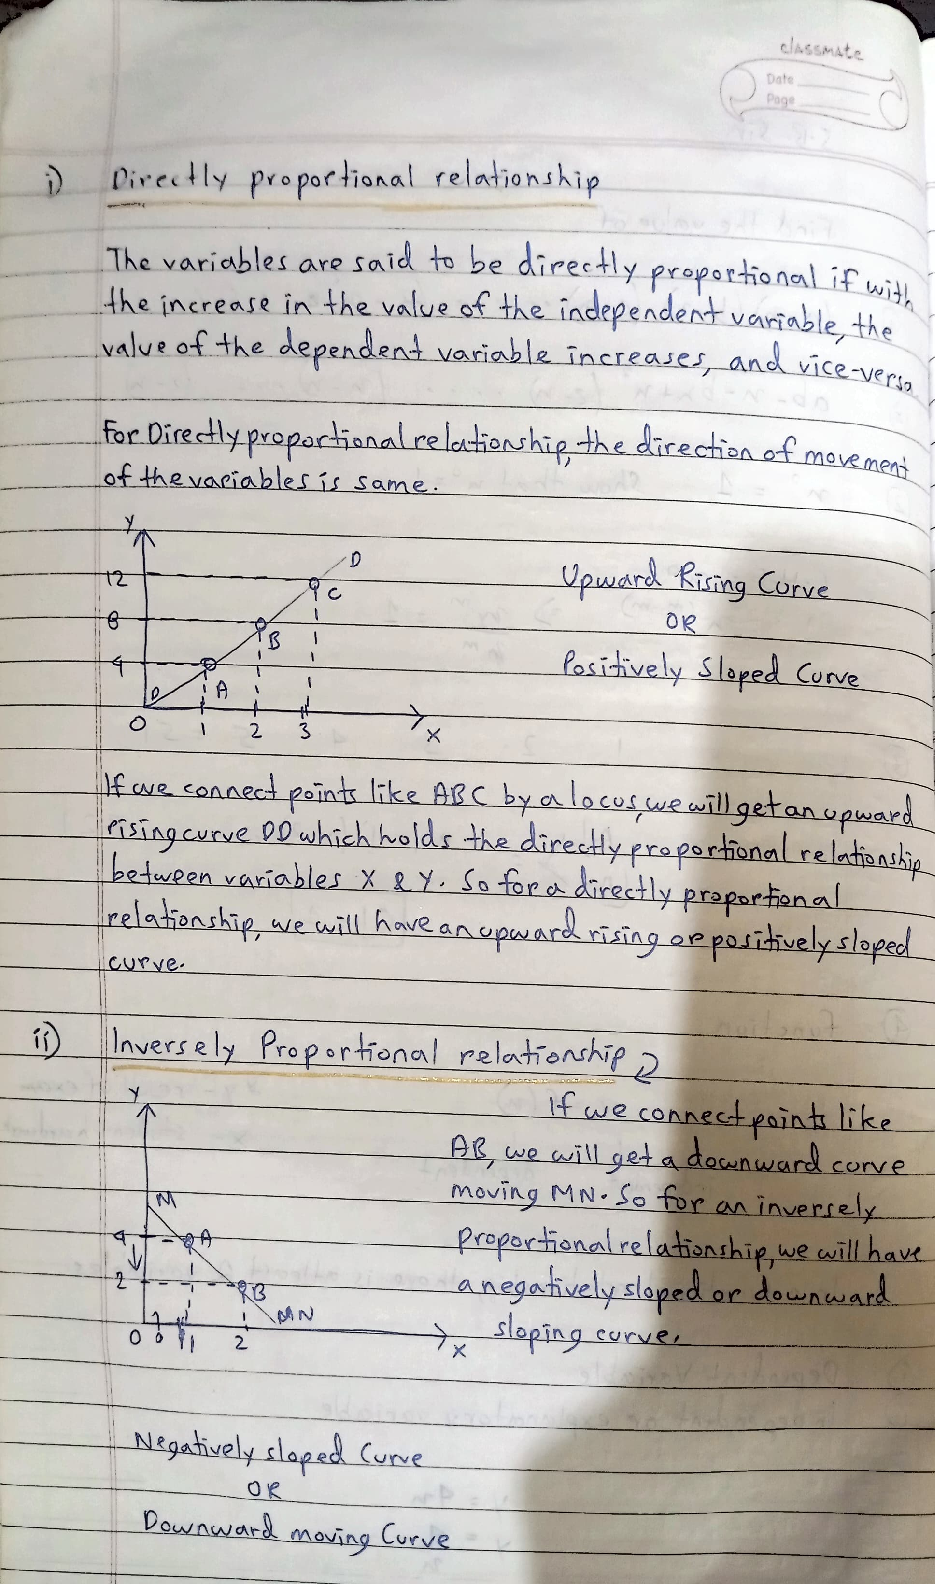 classmate
Date
Page
i) Directly proportional relationship
The variables are said to be directly proportional if with
the increase in the value of the independent variable, the
value of the dependent variable increases, and vice-versa
For Directly proportional relationship, the direction of movement
of the variables is same.
Y
12
8
4
D
C
B
A
D
O
1 2 3
X
Upward Rising Curve
OR
Positively Sloped Curve
If we connect points like ABC by a locus, we will get an upward
rising curve DD which holds the directly proportional relationship
between variables X & Y. So for a directly proportional
relationship, we will have an upward rising or positively sloped
curve.
ii) Inversely Proportional relationship
Y
M
4
A
2
B
N
O
1 2
X
If we connect points like
AB, we will get a downward curve
moving MN. So for an inversely
proportional relationship, we will have
a negatively sloped or downward
sloping curve.
Negatively sloped Curve
OR
Downward moving Curve